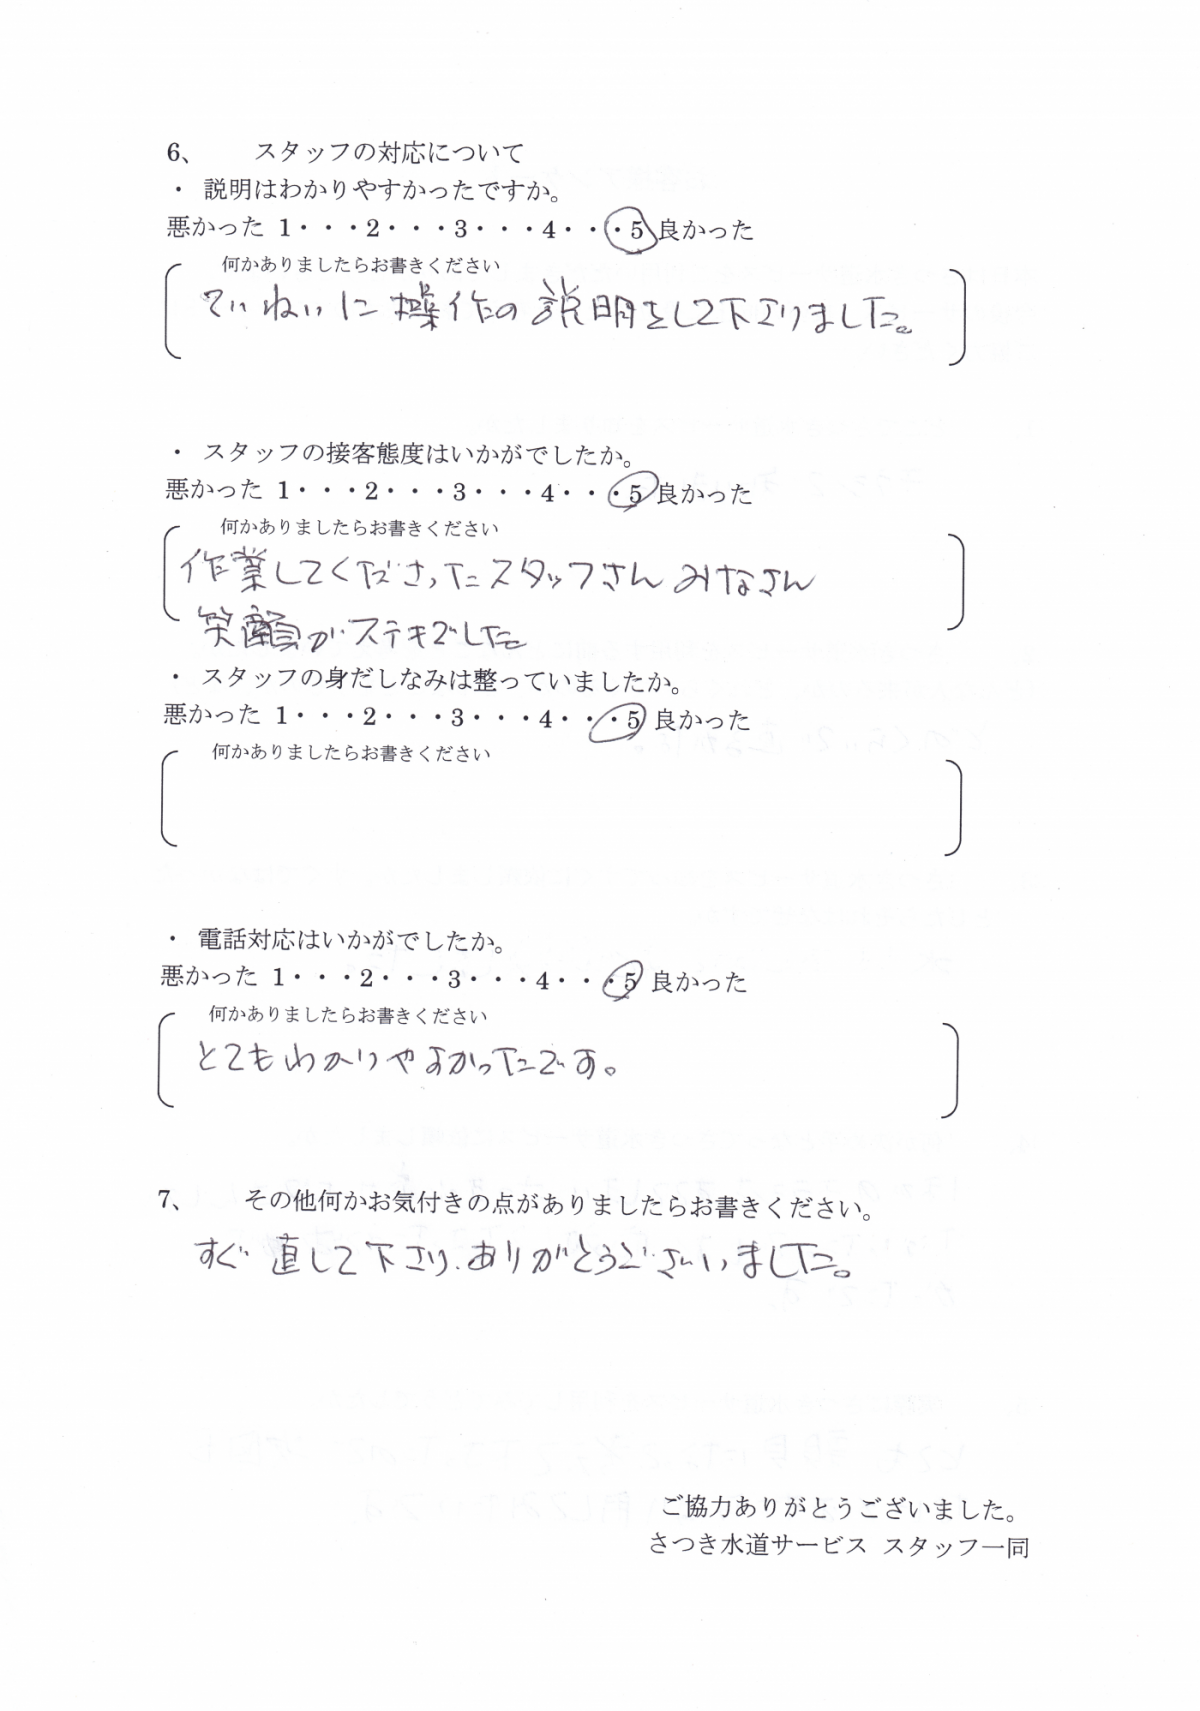 6、 スタッフの対応について
・ 説明はわかりやすかったですか。
悪かった 1・・・2・・・3・・・4・・・5 良かった
何かありましたらお書きください
ていねいに操作の説明をして下さりました。
・ スタッフの接客態度はいかがでしたか。
悪かった 1・・・2・・・3・・・4・・・5 良かった
何かありましたらお書きください
作業してくださったスタッフさん みなさん
笑顔がステキでした
・ スタッフの身だしなみは整っていましたか。
悪かった 1・・・2・・・3・・・4・・・5 良かった
何かありましたらお書きください
・ 電話対応はいかがでしたか。
悪かった 1・・・2・・・3・・・4・・・5 良かった
何かありましたらお書きください
とてもわかりやすかったです。
7、 その他何かお気付きの点がありましたらお書きください。
すぐ直して下さり、ありがとうございました。
ご協力ありがとうございました。
さつき水道サービス スタッフ一同